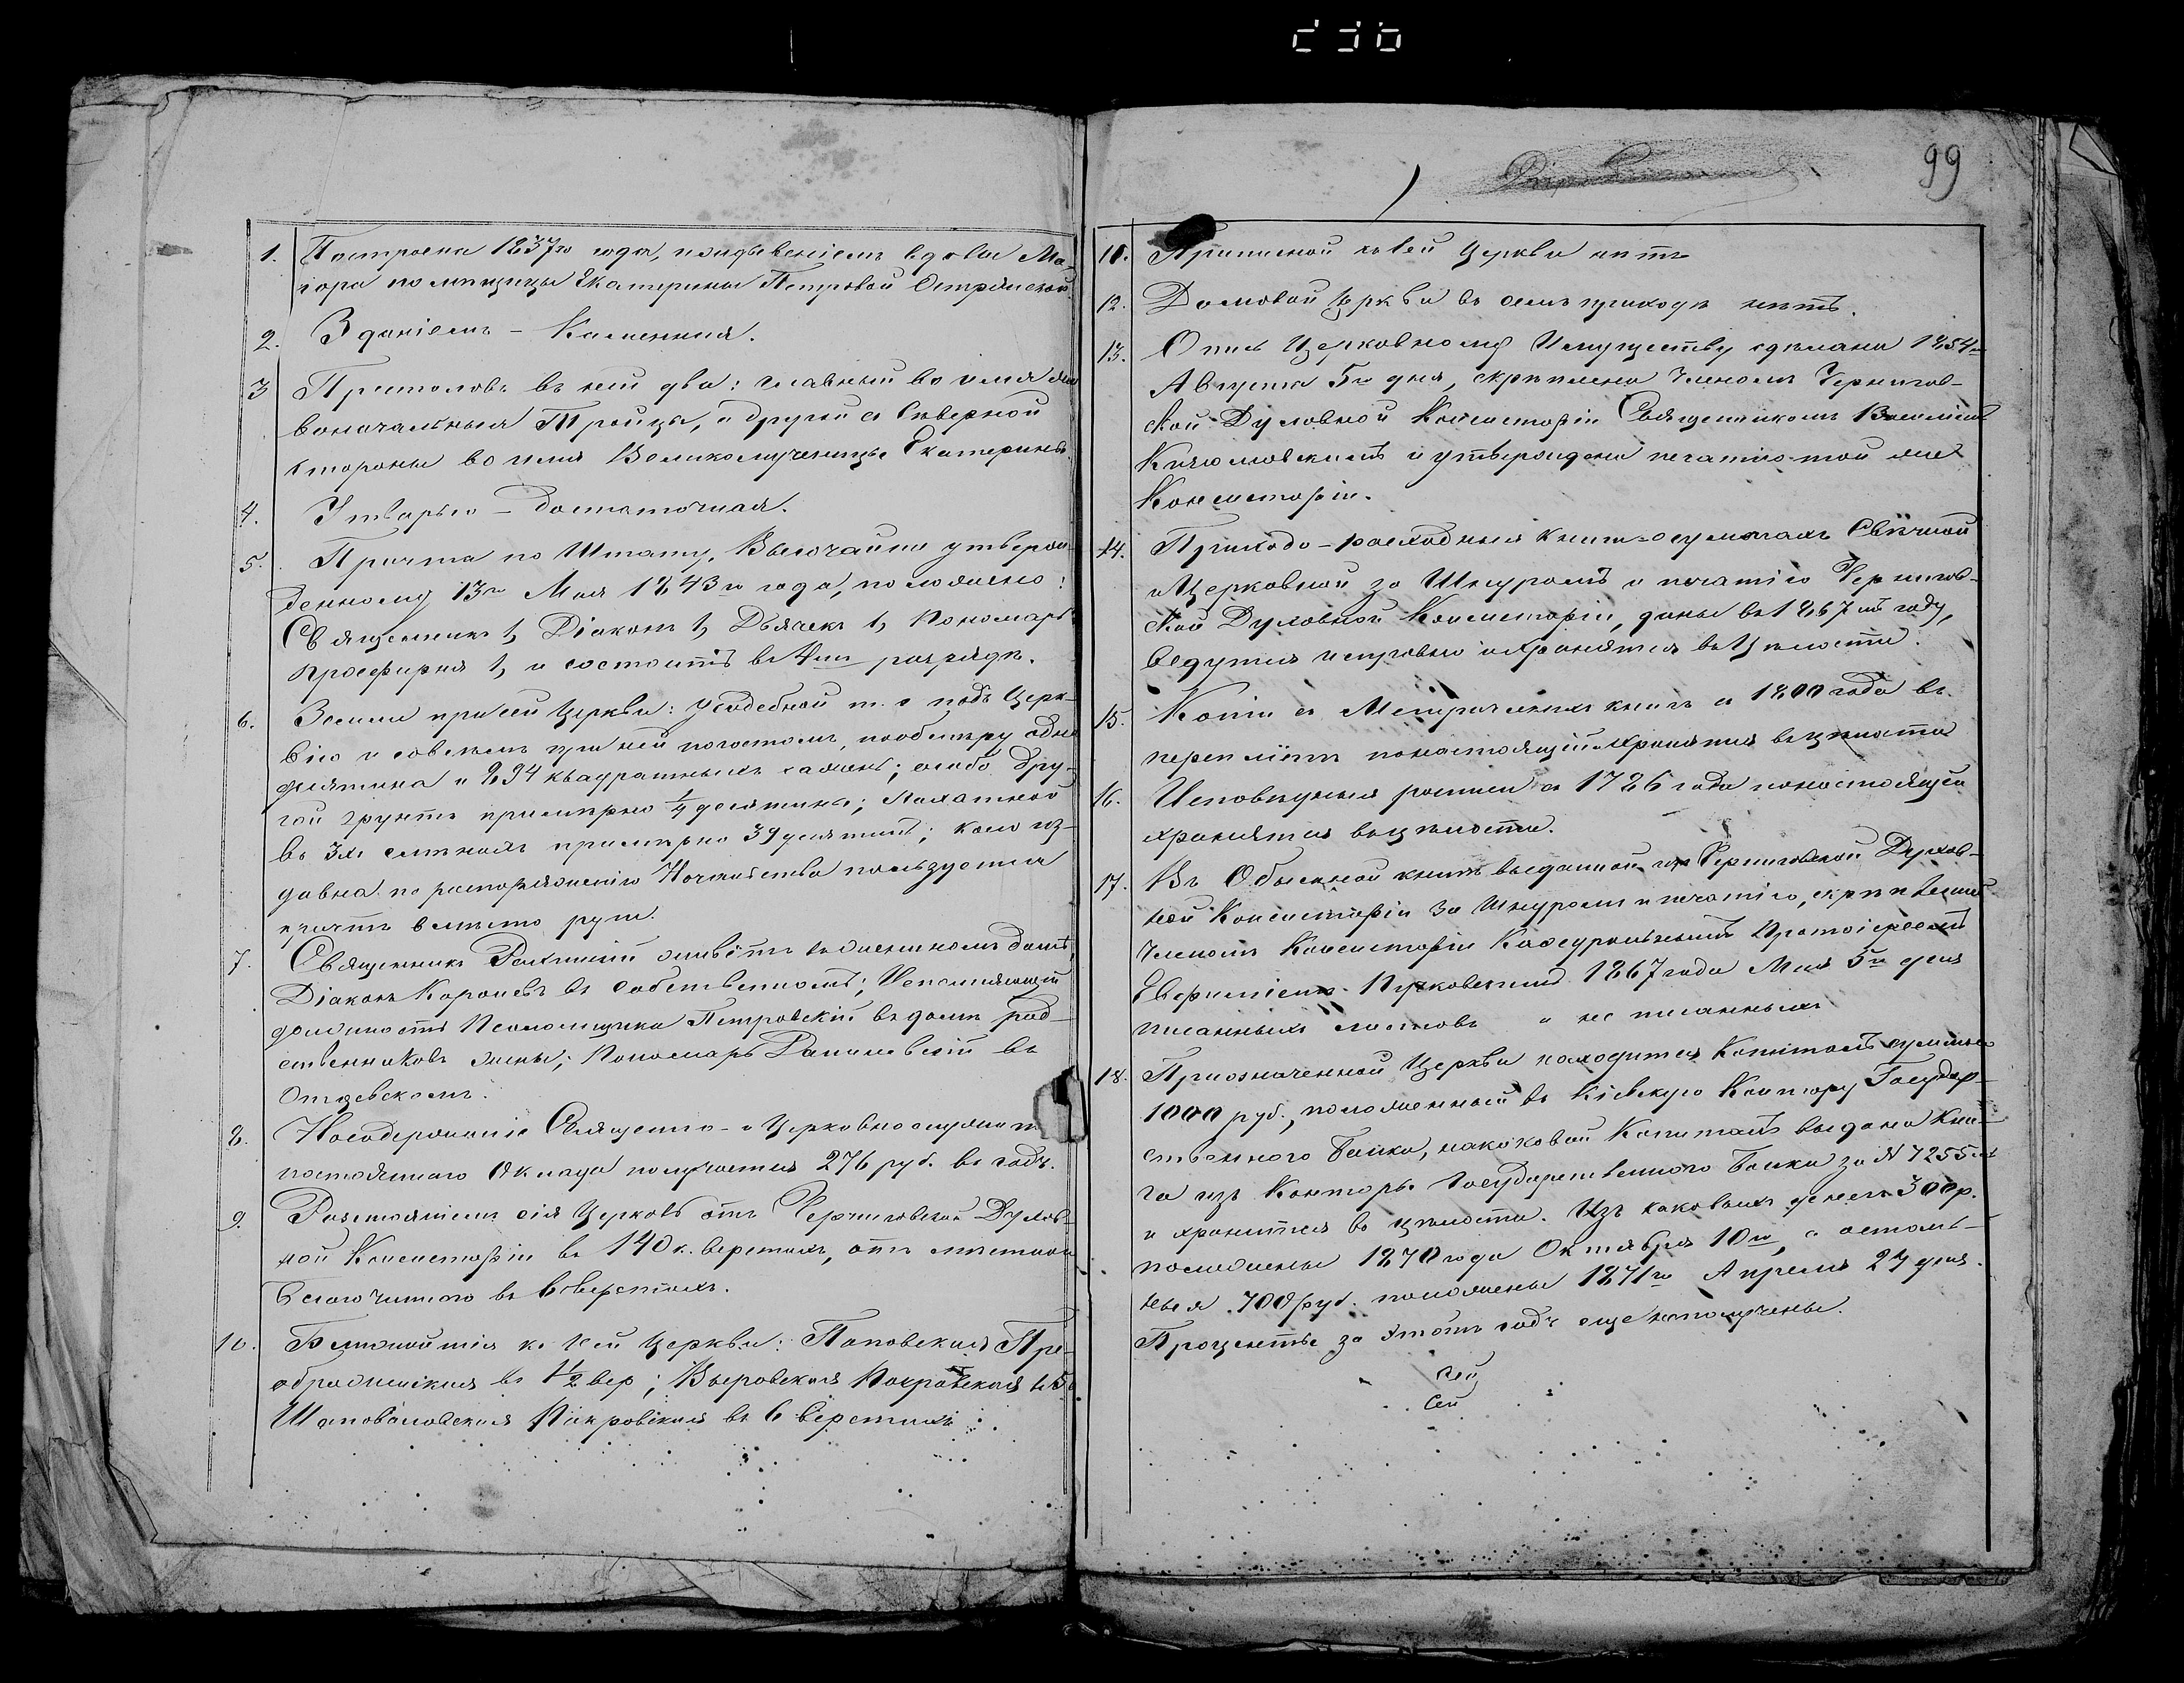 99
1. Построена 1837го года, иждивеніемъ вдовы Ма-
іора помѣщицы Екатерины Петровой Острянской.
2. Зданіемъ – Каменная.
3 Престоловъ въ ней два: главный во имя жи-
воначальныя Троицы, а другій съ Сѣверной
стороны во имя Великомученицы Екатерины.
4. Утварью – достаточная.
5. Причта по Штату, Высочайше утверж-
денному 13го Мая 1843го года, положено:
Священникъ 1, Діаконъ 1, Дьячекъ 1, Пономарь 1
просфирня 1, и состоитъ въ 4мъ разрядѣ.
6. Земли при сей Церкви: усадебной т. е. подъ Церк-
вію и совсѣмъ при ней погостомъ, по обмѣру одна
десятина и 894 квадратныхъ сажень; особо дру-
гой грунтъ примѣрно 1/4 десятины; Пахатной
въ 3хъ смѣнахъ примѣрно 39 десятинъ; коею из-
давна по распоряженію Начальства пользуется
причтъ вмѣсто руги.
7. Священникъ живётъ въ домѣ,
Діаконъ Королевъ въ собственномъ; Исполняющій
должность Псаломщика Петровскій въ домѣ род-
ственниковъ жены; Пономарь въ
Отцевскомъ.
8. На содержаніе Священно- и Церковнослужит
постояннаго Оклада получается 276 руб. въ годъ.
9. Разстояніемъ сія Церковь отъ Черниговской Духов-
ной Консисторіи въ 140 к. верстахъ, отъ мѣстнаго
Благочиннаго въ 6 верстахъ.
10. Ближайшія къ сей Церкви: Поповская Пре-
ображенская въ 1 1/2 вер; Выровская Покровская въ 5
Шаповаловская Покровская въ 6 верстахъ.
11. Приписной къ сей Церкви нѣтъ
12. Домовой Церкви въ семъ приходѣ нѣтъ.
13. Опись Церковному Имуществу сдѣлана 1854го
Августа 5го дня, скрѣплена Членомъ Чернигов-
ской Духовной Консисторіи Священникомъ
и утверждена печатью той же
Консисторіи.
14. Приходо-расходныя книги о суммахъ Свѣчной
и Церковной за Шнуромъ и печатію Чернигов-
ской Духовной Консисторіи, даны въ 1867мъ году,
ведутся исправно и хранятся въ Цѣлости.
15. Копіи съ Метрическихъ книгъ съ 1800 года въ
переплётѣ по настоящій хранятся въ цѣлости
16. Исповѣдныя росписи съ 1726 года по настоящій
хранятся въ цѣлости.
17. Въ Обыскной книгѣ выданной изъ Черниговской Духов-
ной Консисторіи за Шнуромъ и печатію, скрѣпленной
Членомъ Консисторіи Каѳедральнымъ Протоіереемъ
1867 года Мая 5го дня
писанныхъ листовъ и не писанныхъ
18. При означенной Церкви находится Капиталъ суммы
1000 руб., положенный въ Кіевскую Контору Государ-
ственного Банка, на каковой Капиталъ выдана Кни-
га изъ Конторы Государственного Банка за № 7255мъ
и хранится въ цѣлости. Изъ каковыхъ денегъ 300 р.
положены 1870 года Октября 10го, а осталь-
ныя 700 руб. положены 1871го Апреля 27 дня.
Проценты за этотъ годъ еще не получены.
сей
Сей